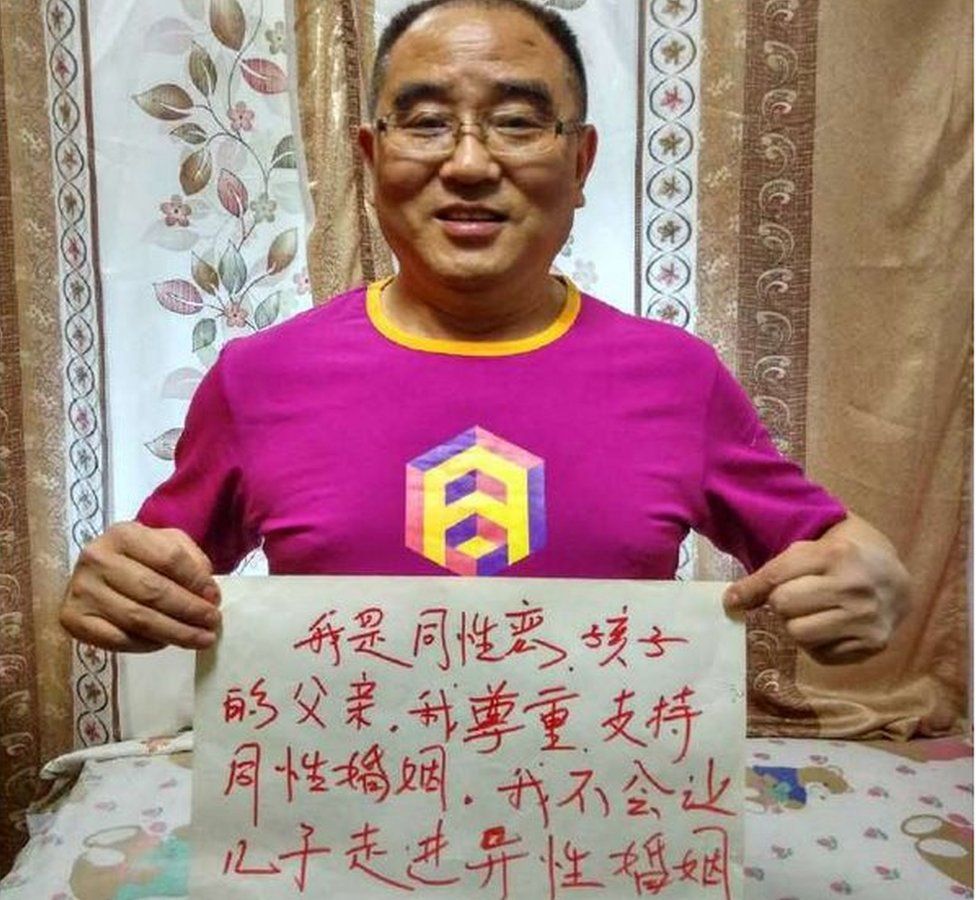 我是同性恋、孩子
的父亲.我尊重、支持
同性婚姻.我不会让
儿子走进异性婚姻